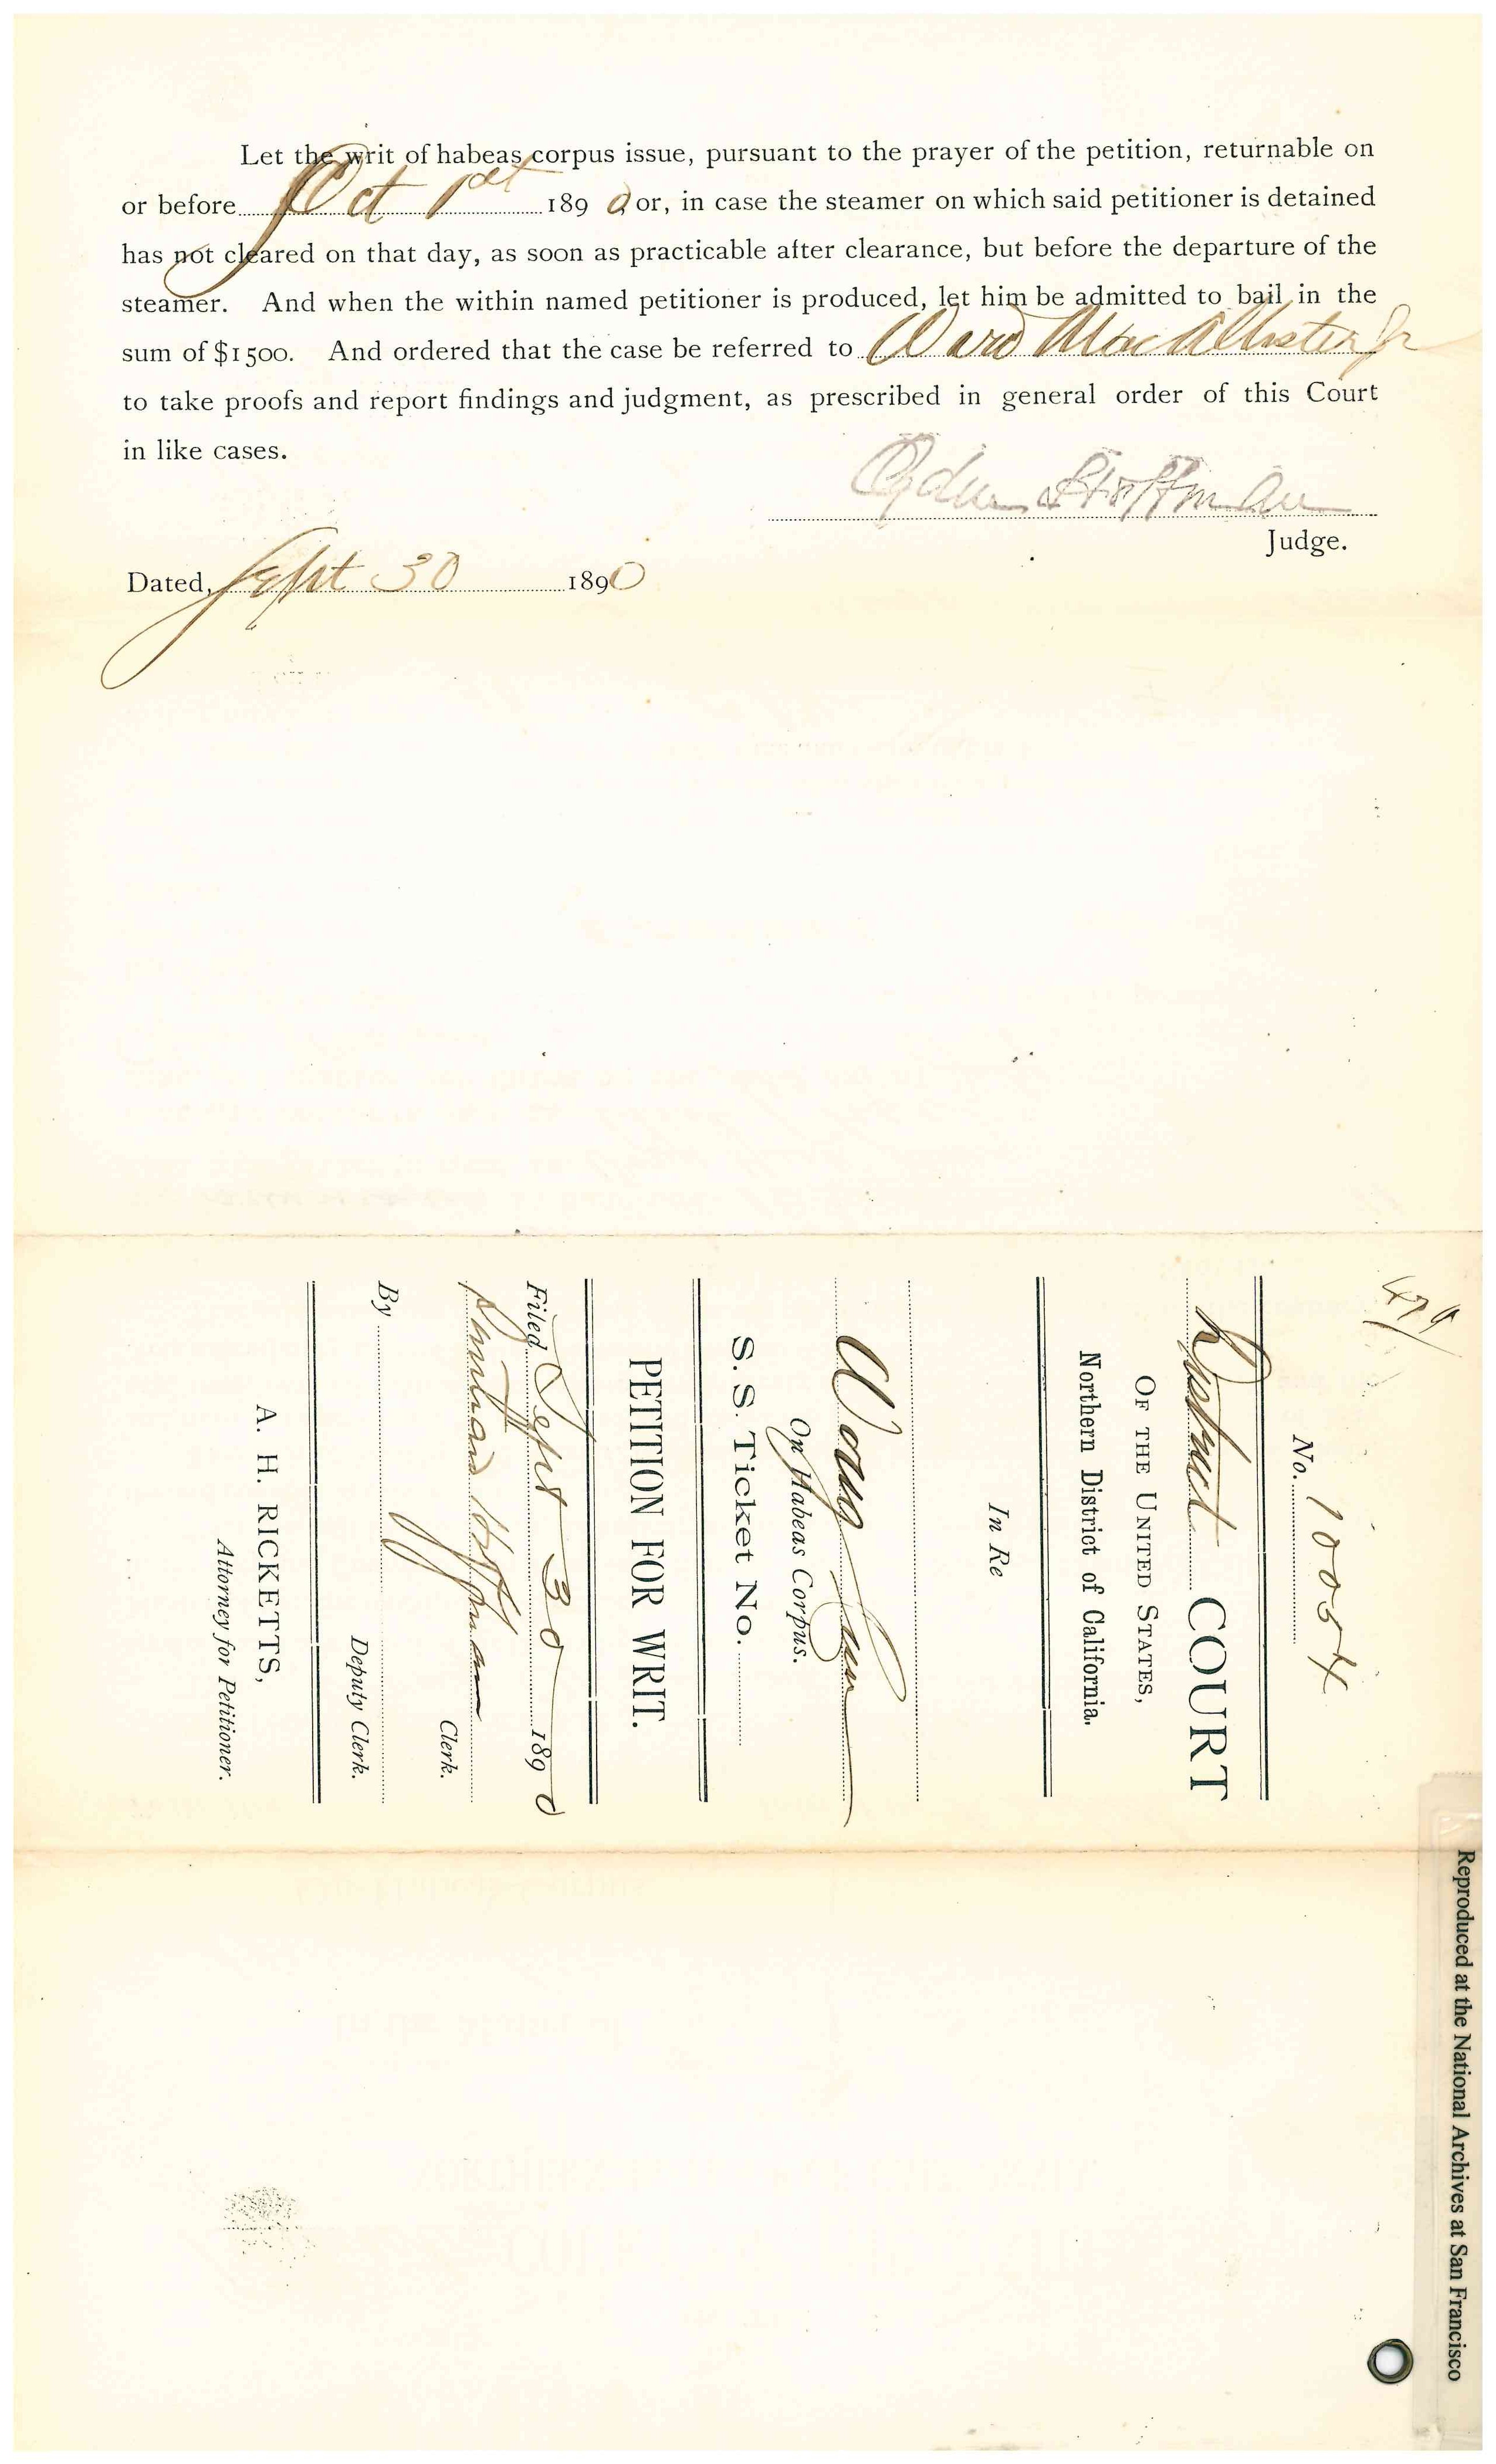 Let the writ of habeas corpus issue, pursuant to the prayer of the petition, returnable on
or before Oct 1st 1890 or, in case the steamer on which said petitioner is detained
has not cleared on that day, as soon as practicable after clearance, but before the departure of the
steamer. And when the within named petitioner is produced, let him be admitted to bail in the
sum of $1500. And ordered that the case be referred to Ward MacAllister Jr
to take proofs and report findings and judgment, as prescribed in general order of this Court
in like cases.
Ogden Hoffman
Judge.
Dated, Sept 30 1890
479
No. 10054
District COURT
OF THE UNITED STATES,
Northern District of California.
In Re
Wong
On Habeas Corpus.
S. S. Ticket No.
PETITION FOR WRIT.
Filed Sept 30 1890
Southard Hoffman
Clerk.
By
Deputy Clerk.
A. H. RICKETTS,
Attorney for Petitioner.
Reproduced at the National Archives at San Francisco